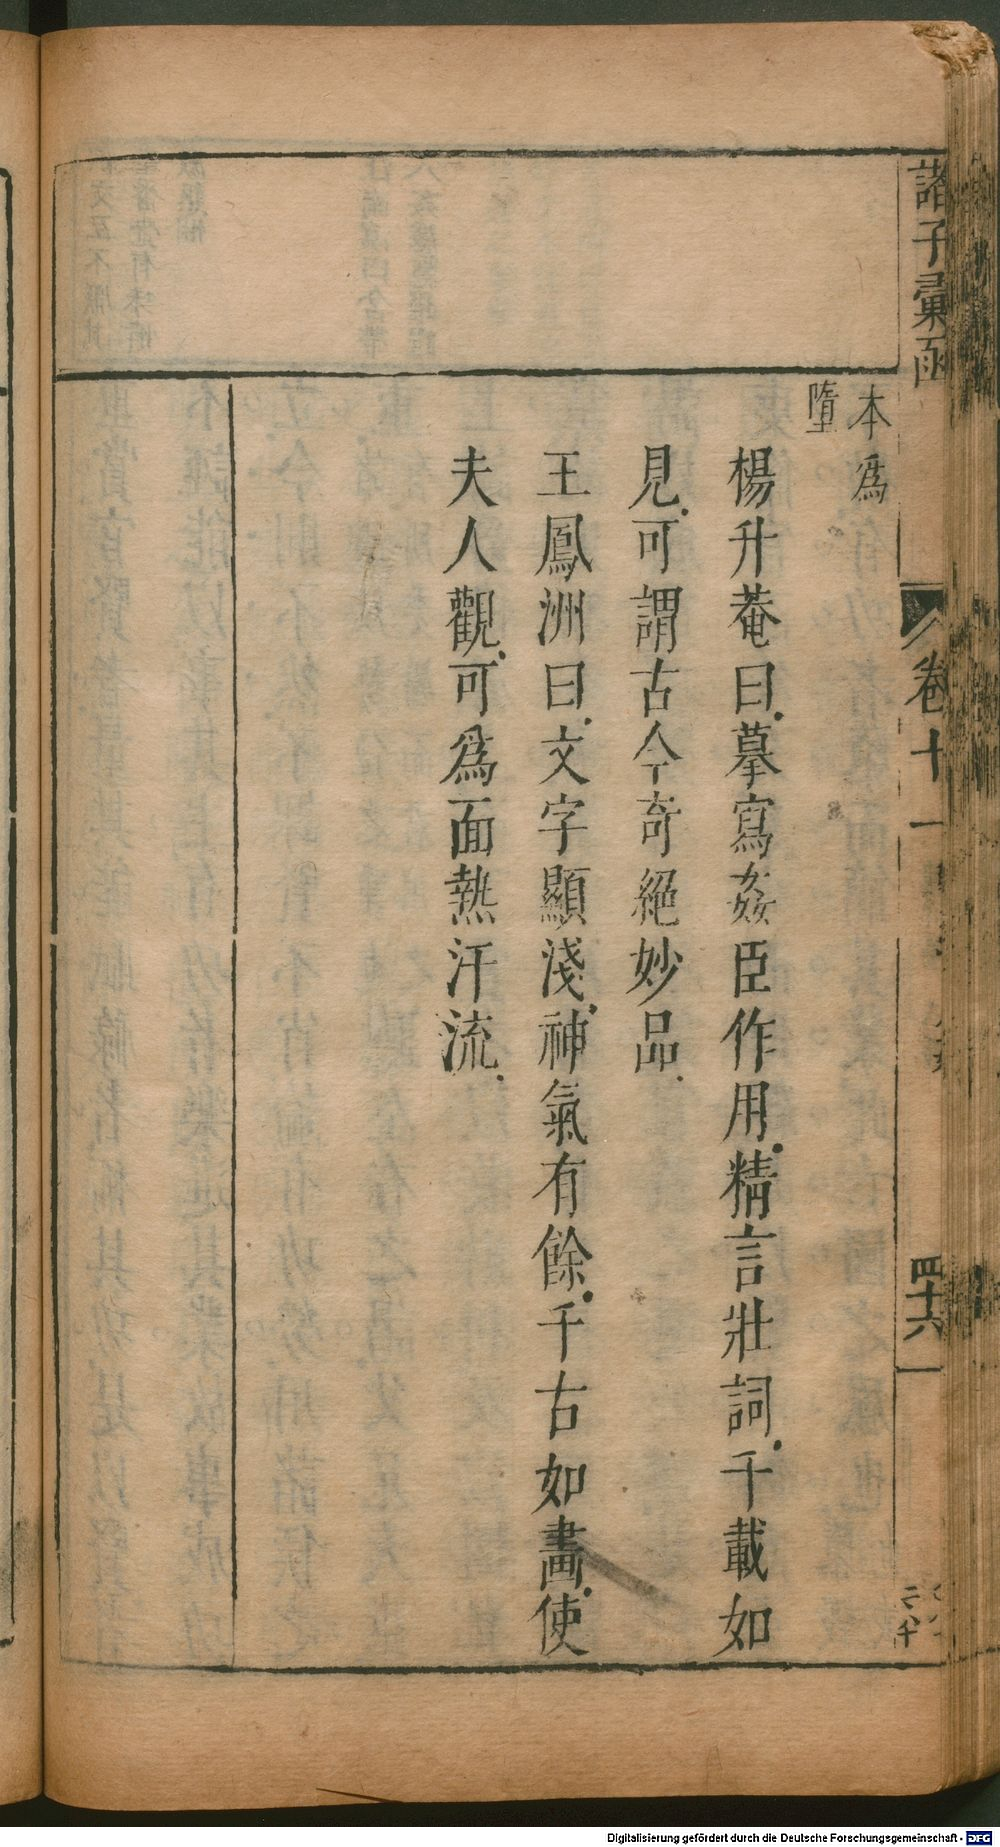 諸子彙函
卷十一
四十六
本爲
墮
楊升菴曰摹寫姦臣作用精言壯詞千載如
見可謂古今奇絕妙品
王鳳洲曰文字顯淺神氣有餘千古如畫使
夫人觀可爲面熱汗流
Digitalisierung gefördert durch die Deutsche Forschungsgemeinschaft - DFG